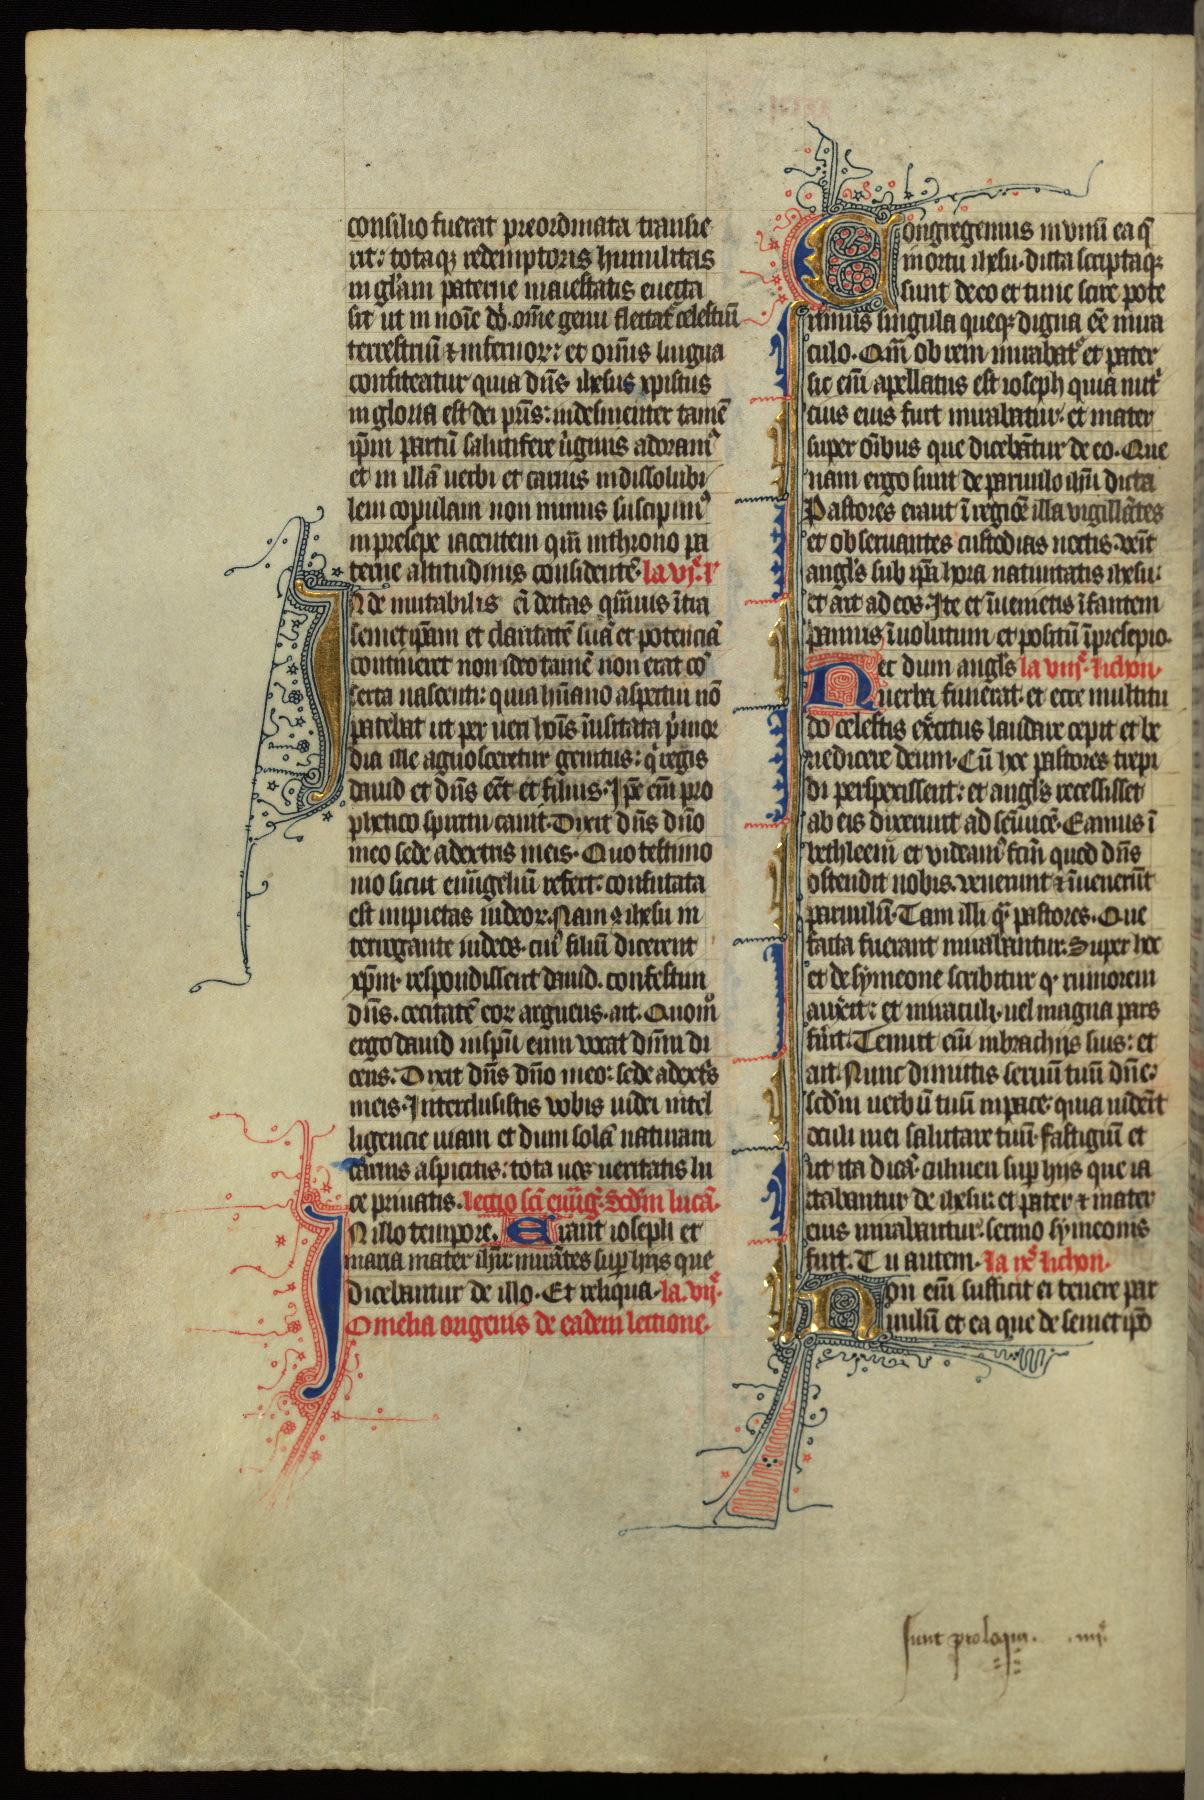 consilio fuerat preordinata transie
rit: totaq; redemptoris humilitas
in gl'am paterne maiestatis euecta
sit ut in noīe dō. om̄e genu flectat᷑ celestiū
terrestriū ⁊ infernor᷑: et om̄is lingua
confiteatur quia dn̄s ihesus xpistus
in gloria est dei pr̄is: indesinenter tamē
ip̄m partū salutifere u'ginis adoram᷑
et in illā uerbi et carnis indissolubi
lem copulam non minus suscipim᷑
in presepe iacentem qm̄ in throno pa
terne altitudinis considentē. la vj.
In de mutabilis deitas
semetip̄am et claritatē suā et potenciā
contineret non ideo tamē non erat co
serta nascenti: quia hūano aspectui nō
patebat ut per ueri hoīs īusitata p'mor
dia ille agnosceretur genitus: q' regis
dauid et dn̄s eēt et filius. Ip̄e eni᷑ pro
phetico spiritu canit. Dixit dn̄s dn̄o
meo sede adextris meis. Quo testimo
nio sicut euu̅gelīu refert: confutata
est impietas iudeor᷑. Nam q ihesu in
terrogante iudeos. cui᷑ filiū dicerent
xp̄m. respondissent dauid. confestim
dn̄s. cecitatē eor arguens. ait. Quom̊
ergo dauid inspū eum vocat dn̄m di
cens: Dixit dn̄s dn̄o meo: sede adext'is
meis. Interclusistis vobis iudei intel
ligencie uiam et dum solā naturam
carnis aspicitis: tota uos ueritatis lu
ce priuatis. lectio sc̄i euu̅g. Scdm lucā.
In illo tempore. Erant ioseph et
maria mater ihū: mirātes sup hijs que
dicebantur de illo. Et reliqua. la. vij.
Omelia origenis de eadem lectione.
Congregemus in vnū ea q̄
in ortu ihesu. dicta scriptaq;
sunt de eo et tunc scire pote
rimus singula queq; digna eē mira
culo. Qm̄ ob rem mirabat᷑ et pater
sic eni᷑ apellatus est ioseph quia nut᷑
cius eius fuit mirabatur. et mater
super oībus que dicebātur de eo. Que
nam ergo sunt de paruulo ihū dicta
Pastores erant ī regiōe illa vigillātes
et obseruantes custodias noctis. ven̄it
angl's sub ip̄a hora natiuitatis ihesu:
et ait ad eos. Ite et īuenietis īfantem
pannis īuolutum et positū īpresepio.
Nec dum angl's la viij. Nichon.
uerba finierat. et ecce multitu
do celestis ex̄citus laudare cepit et be
nedicere deum. Cū hec pastores trepi
di perspexissent: et angl's recessisset
ab eis dixerunt ad seīuicē. Eamus ī
bethleem et videam᷑ fc̄m quod dn̄s
ostendit nobis. venerunt ⁊ īuenerūt
paruulū. Tam illi q̄ pastores. Que
facta fuerant mirabantur. Super hec
et de symeone scribitur q. rumorem
aux̄it: et miraculi. uel magna pars
fuit. Tenuit eni᷑ inbrachijs suis: et
ait. Nunc dimittis seruū tuū dn̄e:
scdm uerbū tuū inpace. quia uiderūt
oculi mei salutare tuū. fastigiū et
ut ita dicā. culmen sup hijs que ia
ctabantur de ihesu: et pater ⁊ mater
eius mirabantur: sermo symeonis
fuit. Tu autem. la ix. Nichon.
Non eni᷑ sufficit ei tenere par
uulū et ea que de semet ip̄o
sunt proloqui. . iiij.